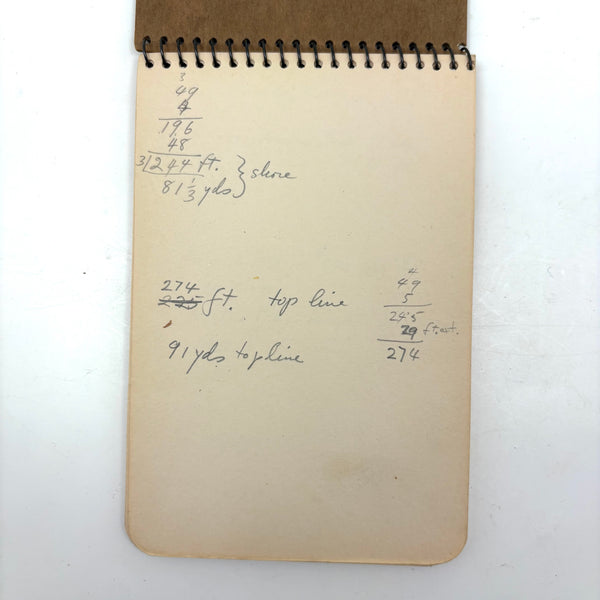 3
49
4
196
48
3)244 ft. } shore
81 1/3 yds }
274
225 ft. top line
91 yds top line
4
49
5
245
29 ft.
274